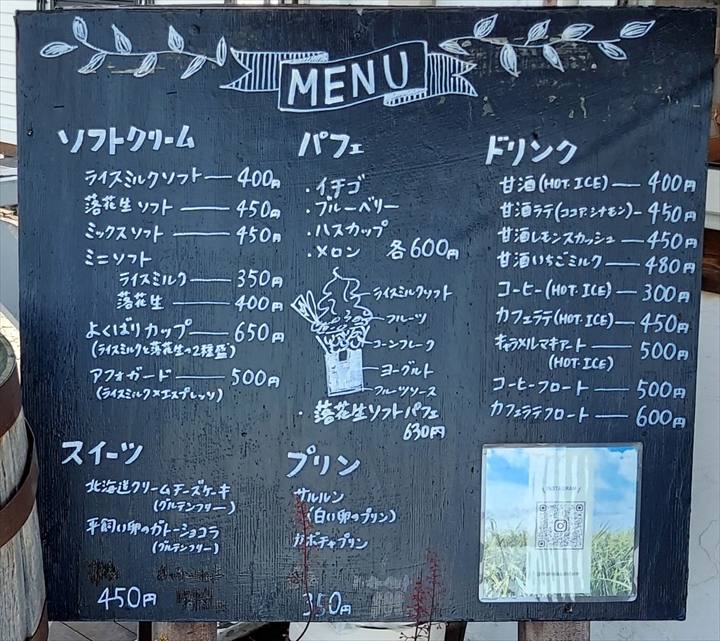 MENU
ソフトクリーム
ライスミルクソフト 400円
落花生ソフト 450円
ミックスソフト 450円
ミニソフト
ライスミルク 350円
落花生 400円
よくばりカップ 650円
(ライスミルクと落花生の2種盛)
アフォガード 500円
(ライスミルク×エスプレッソ)
パフェ
・イチゴ
・ブルーベリー
・ハスカップ
・メロン 各600円
ライスミルクソフト
フルーツ
コーンフレーク
ヨーグルト
フルーツソース
・落花生ソフトパフェ
630円
ドリンク
甘酒(HOT・ICE) 400円
甘酒ラテ(ココア・シナモン) 450円
甘酒レモンスカッシュ 450円
甘酒いちごミルク 480円
コーヒー(HOT・ICE) 300円
カフェラテ(HOT・ICE) 450円
キャラメルマキアート 500円
(HOT・ICE)
コーヒーフロート 500円
カフェラテフロート 600円
スイーツ
北海道クリームチーズケーキ
(グルテンフリー)
平飼い卵のガトーショコラ
(グルテンフリー)
450円
プリン
サルルン
(白い卵のプリン)
カボチャプリン
350円
INSTAGRAM